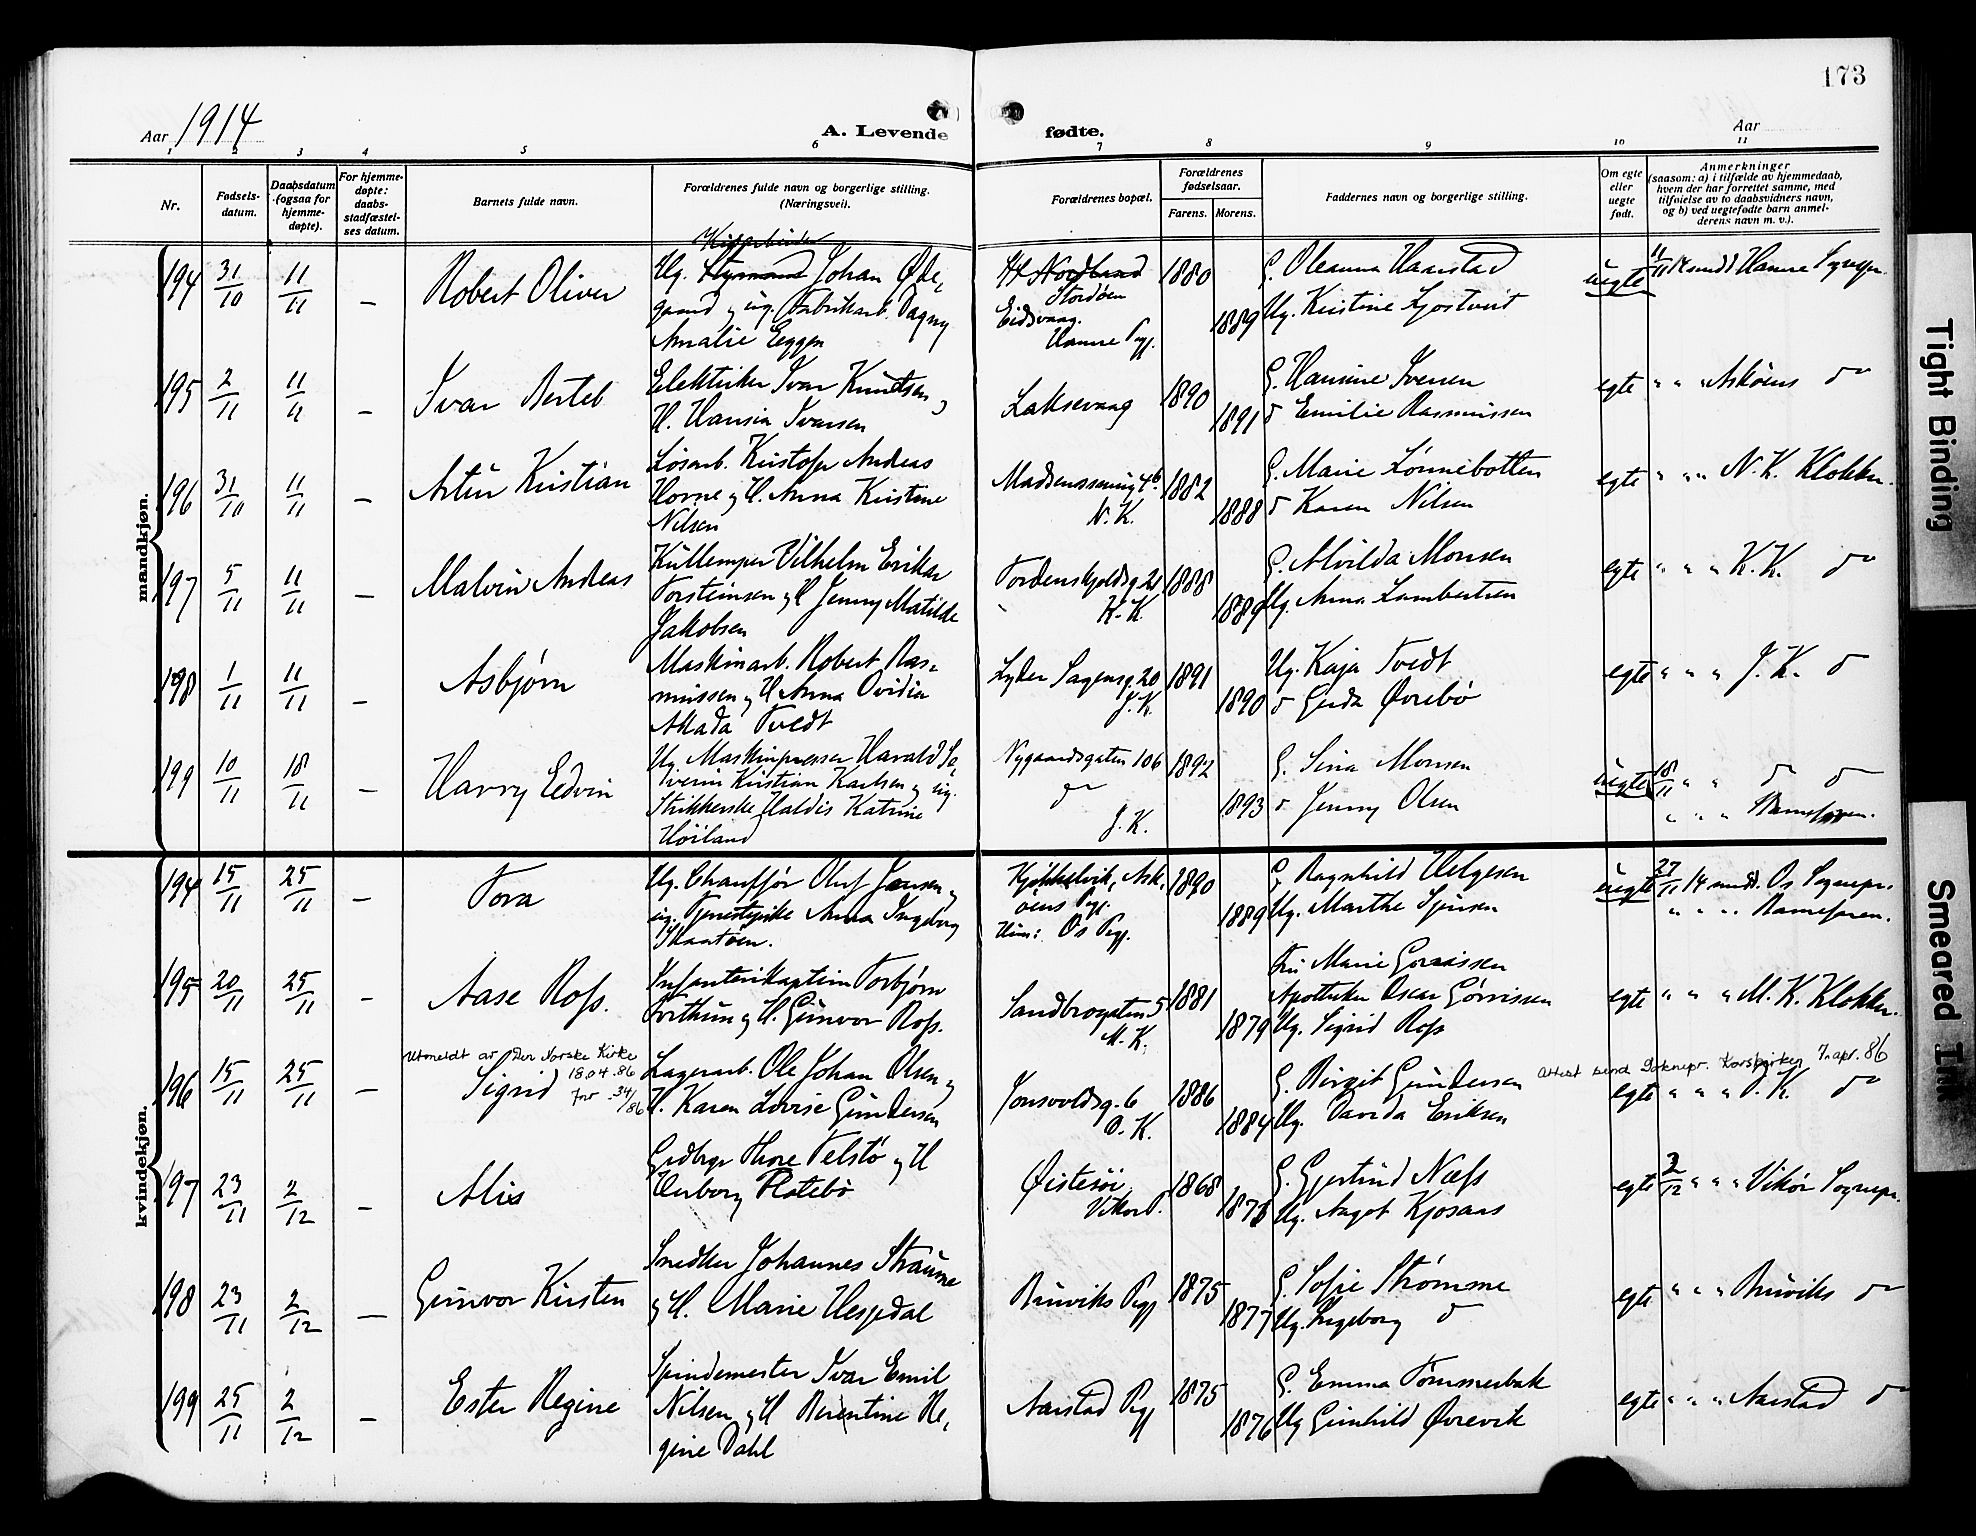 173
Aar 1914
A. Levende fødte.
Aar
1 2 3 4 5 6 7 8 9 10 11
Nr.
Fødsels-
datum.
Daabsdatum
(ogsaa for
hjemme-
døpte).
For hjemme-
døpte:
daabs-
stadfæstel-
ses datum.
Barnets fulde navn.
Forældrenes fulde navn og borgerlige stilling.
(Næringsvei).
Forældrenes bopæl.
Forældrenes
fødselsaar.
Farens. Morens.
Faddernes navn og borgerlige stilling.
Om egte
eller
uegte
født.
Anmerkninger
(saasom: a) i tilfælde av hjemmedaab,
hvem der har forrettet samme, med
tilføielse av to daabsvidners navn,
og b) ved uegtefødte barn anmel-
derens navn m. v.).
mandkjøn.
194 31/10 11/11 — Robert Oliver
Ug. Styrmand Johan Øde-
gaard og ug. Fabrikarb. Dagny
Amalie Eggen
H Nordland
Stordøen
Eidsvaag.
Hamre Pgj.
1880
1889
G. Oleanna Haarstad
Ug. Kristine Ljostveit
uegte
11/11 14 smdd Hamre Sognepr.
195 2/11 11/11 — Ivar Berteb
Elektriker Ivar Knudsen og
H. Hansia Ivarsen
Laksevaag
1890
1891
G. Hansine Iversen
d Emilie Rasmussen
egte
" " " Askøens do
196 31/10 11/11 — Artur Kristian
Løsarb. Kristofer Andreas
Horne og H. Anna Kristine
Nilsen
N. K.
1882
1888
G. Marie Lønnebotten
d Karen Nilsen
egte
" " " N. K. Klokker.
197 5/11 11/11 — Malvin Andreas
Kullemper Vilhelm Erikar
Torsteinsen og H Jenny Matilde
Jakobsen
Tordenskjoldsg. 21
K. K.
1888
1889
G. Alvilda Monsen
Ug. Anna Lambertsen
egte
" " " K. K. do
198 1/11 11/11 — Asbjørn
Maskinarb. Robert Ras-
mussen og H Anna Ovidia
Akada Tvedt
Lyder Sagensg. 20
J. K.
1891
1890
Ug. Kaja Tvedt
d Gerda Øvrebø
egte
" " " J. K. d
199 10/11 18/11 — Harry Edvin
Ug. Maskinpresser Harald Se-
verin Kristian Karlsen og ug.
Strikkerske Haldis Katrine
Høiland
Nygaardsgaten 106
do
J. K.
1892
1893
G. Sina Monsen
d Jenny Olsen
uegte
18/11 " " d d
" " " Barnefaren.
kvindekjøn.
194 15/11 25/11 — Tora
Ug. Chauffør Oluf Jansen og
ug. Tjenestepike Anna Ingeborg
Skaatøen.
Kjøkkelvik, Ask-
øens Pgj.
Hun: Os Pgj.
1890
1889
G. Ragnhild Helgesen
Ug. Marthe Sjursen
uegte
27/11 14 smdd. Os Sognepr.
" " " Barnefaren.
195 20/11 25/11 — Aase Ross.
Infanterikaptein Torbjørn
Frithun og H. Gunvor Ross.
Sandbrogaten 5
M. K.
1881
1879
Fru Marie Gørrissen
Apotheker Oscar Gørrissen
Ug. Sigrid Ross
egte
" " " M. K. Klokker.
196 15/11 25/11 — Sigrid
Utmeldt av Den Norske Kirke
18.04.86
Jnr. 34/86
Lagerarb. Ole Johan Olsen og
H. Karen Lovise Gundersen
Jonsvoldsg. 6
J. K.
1886
1884
G. Birgit Gundersen
Ug. Davida Eriksen
Attest send Soknepr. Korskirken 7. apr. 86
egte
" " " J. K. do
197 23/11 2/12 — Alis
Grdbrgr Thore Telstø og H
Herborg Flatebø
Øistesø
Vikør P.
1868
1873
G. Gjertrud Næss
Ug. Aagot Kjosaas
egte
2/12 " " " Vikør Sognepr.
198 23/11 2/12 — Gunvor Kirsten
Snedker Johannes Straume
og H. Marie Hesjedal
Bruviks Pgj
1875
1877
G. Sofie Strømme
Ug. Ingeborg d
egte
" " " Bruviks do
199 25/11 2/12 — Ester Regine
Spindemester Ivar Emil
Nilsen og H Berentine Re-
gine Dahl
Aarstad Pgj
1875
1876
G. Emma Tømmerbak
Ug Gunhild Øvrevik
egte
" " " Aarstad d
Tight Binding
Smeared Ink